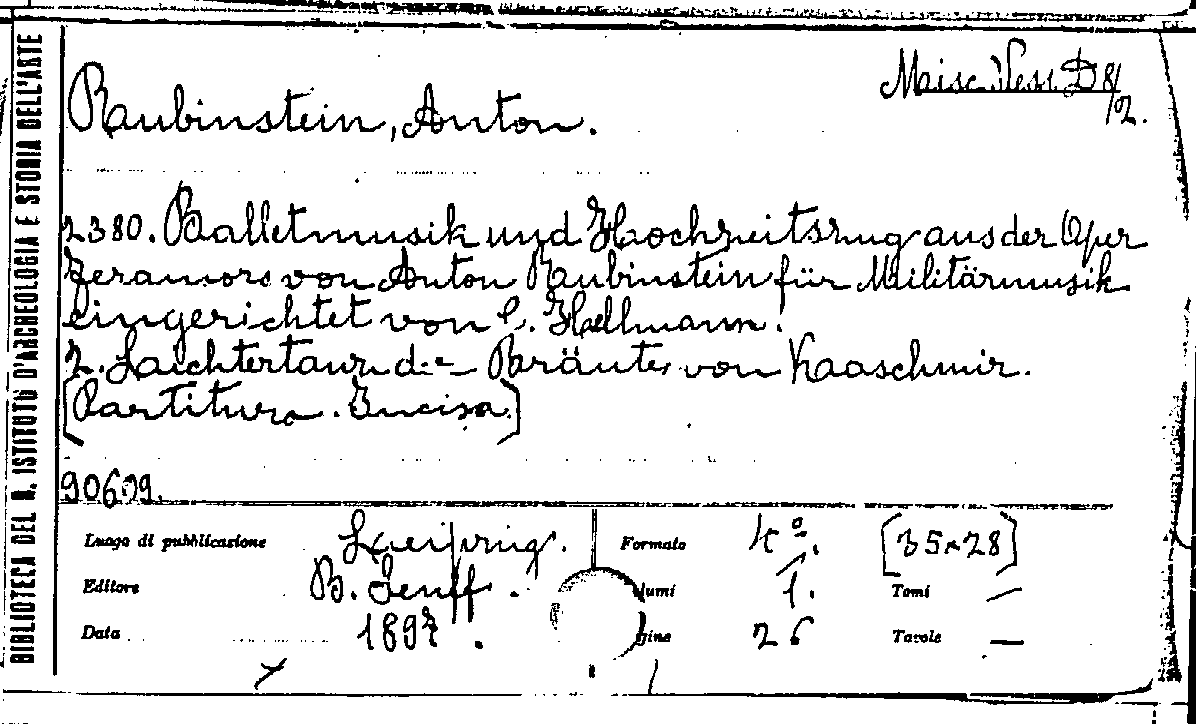 BIBLIOTECA DEL R. ISTITUTO D'ARCHEOLOGIA E STORIA DELL'ARTE
Misc. Vess. D 8/2.
Rubinstein, Anton.
2380. Balletmusik und Hochzeitszug aus der Oper
Feramors von Anton Rubinstein für Militärmusik
eingerichtet von C. Hellmann.
2. Lichtertanz der Bräute von Kaschmir.
[Partitura. Incisa.]
90609.
Luogo di pubblicazione Leipzig. Formato 4º. [35×28]
Editore B. Senff. lumi 1. Tomi —
Data 1893. gine 26 Tavole —